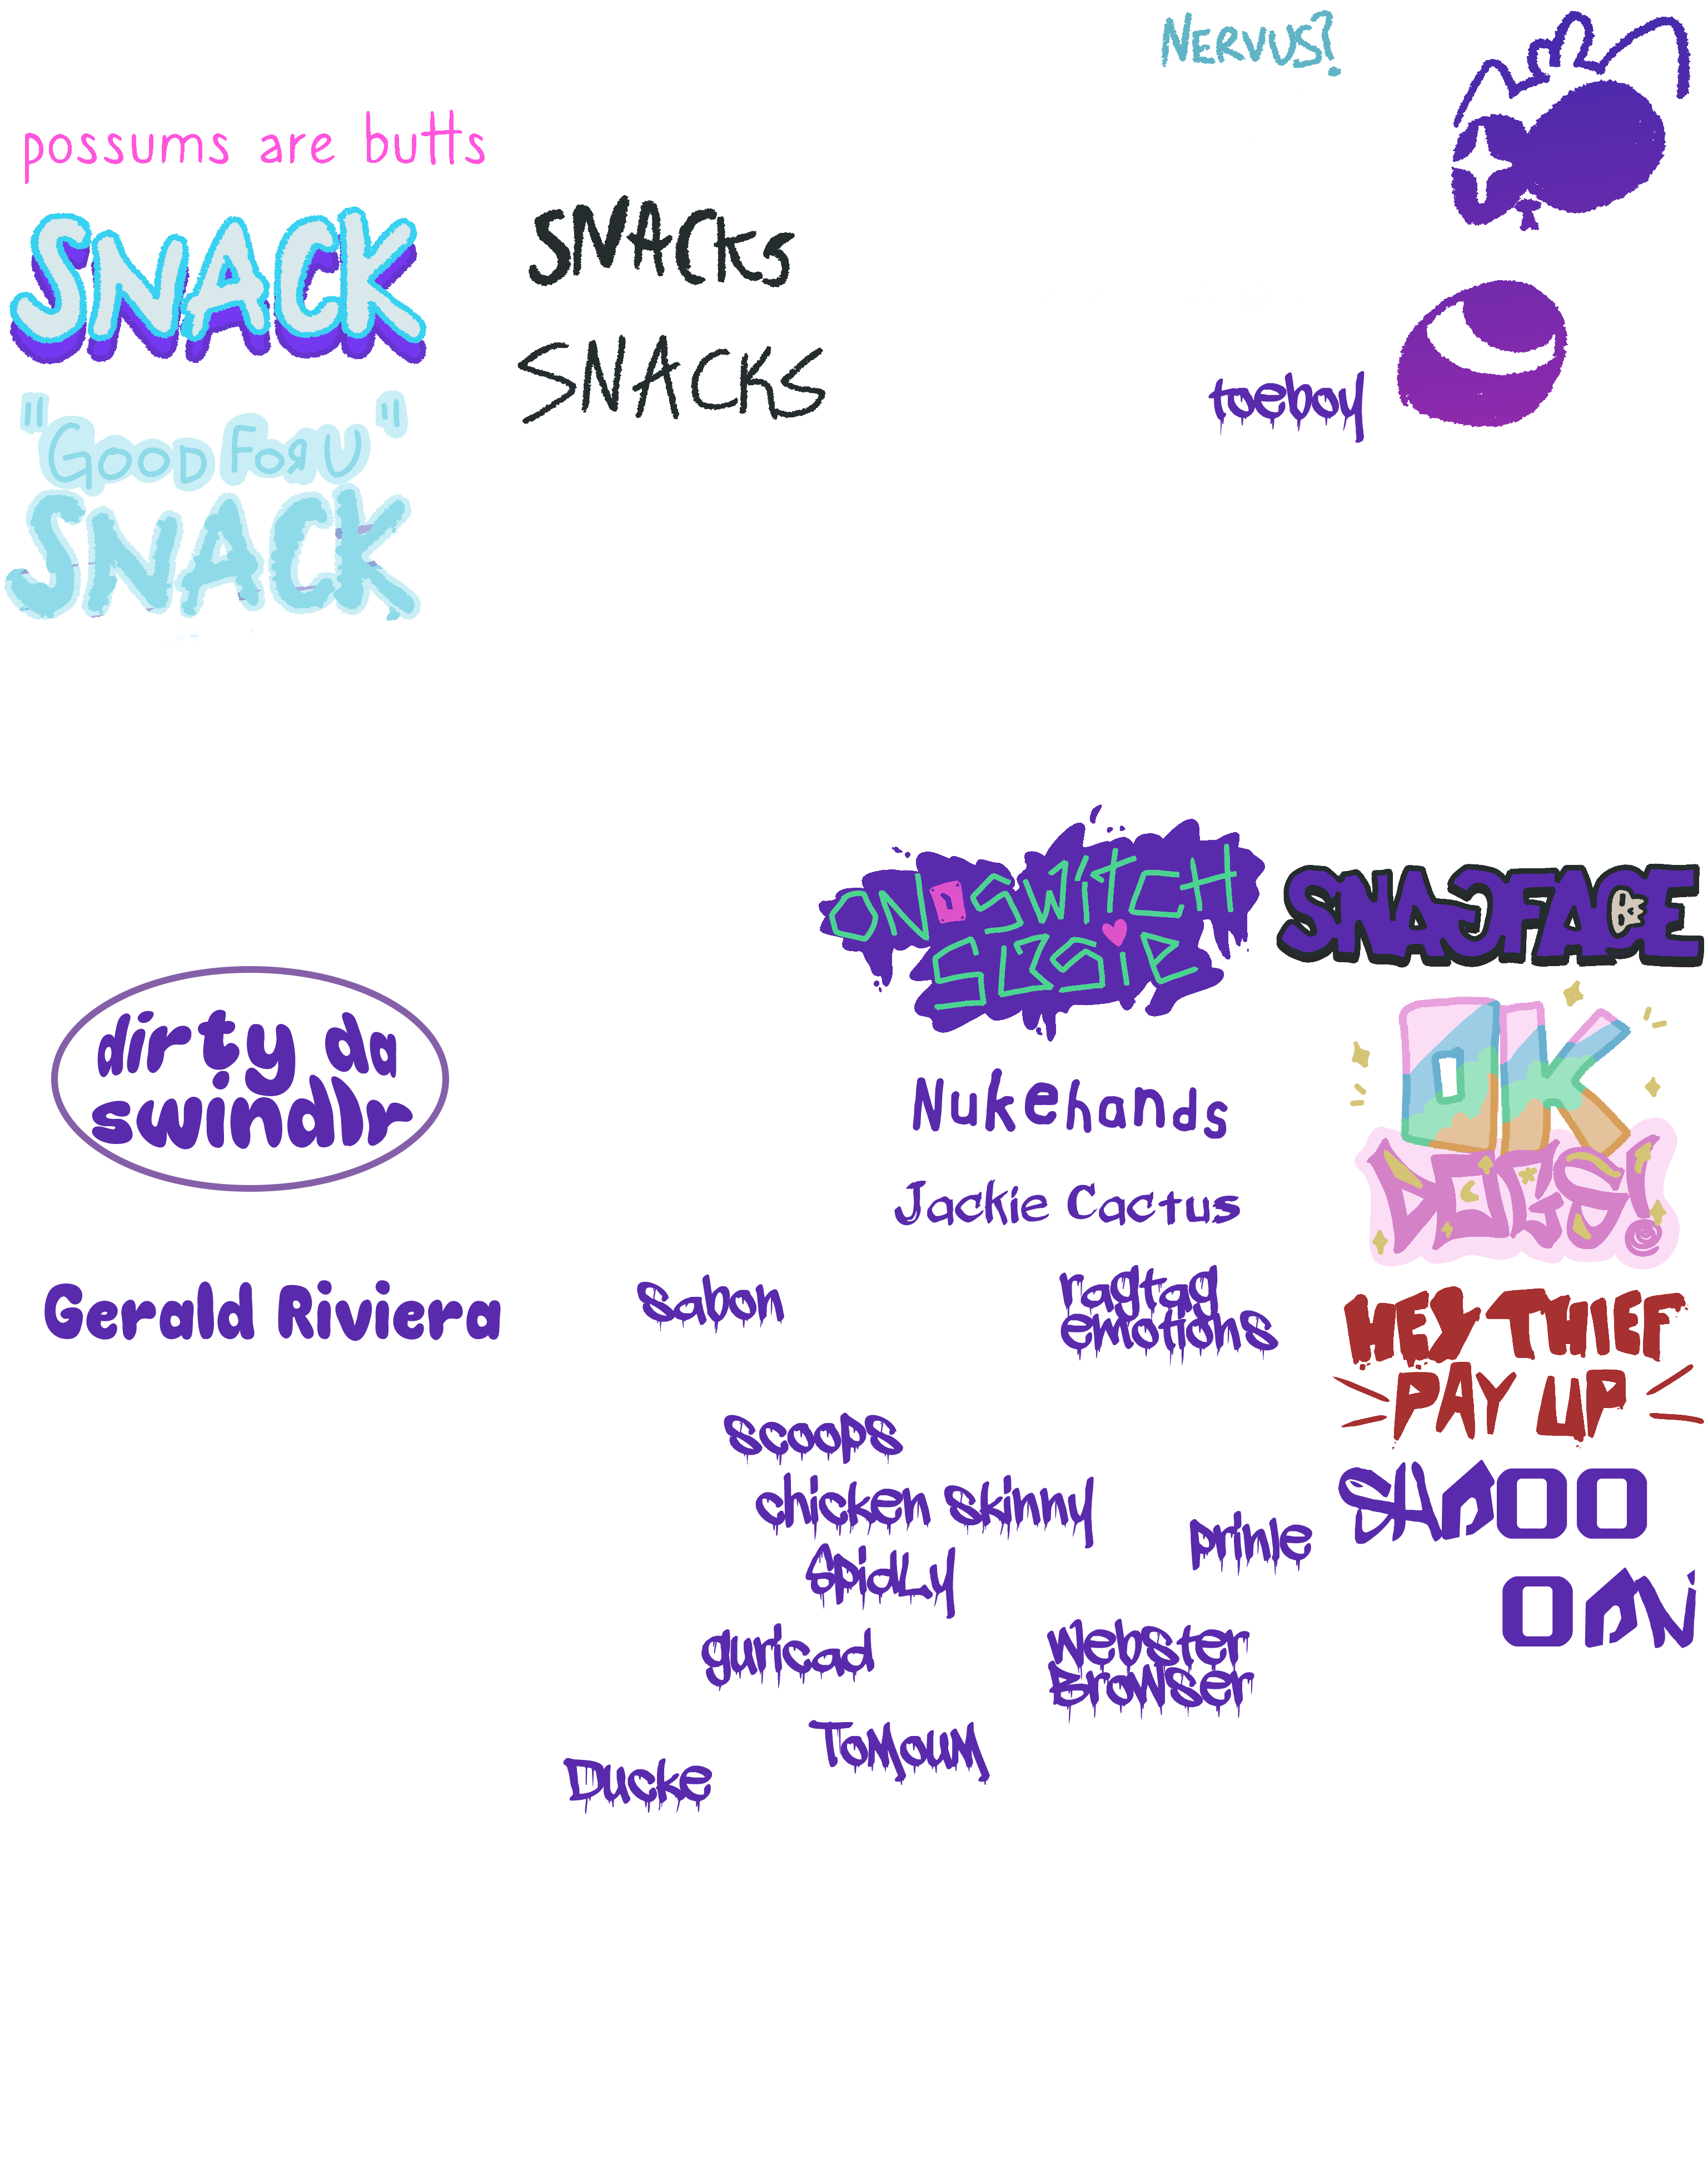 NERVUS?
possums are butts
SNACK
SNACKS
SNACKS
toeboy
"GOOD FOR U"
SNACK
ON SWITCH
SUSIE
SNAJFACE
dirty da
swindlr
Nukehands
Jackie Cactus
OK
Gerald Riviera
Sabon
ragtag
emotions
HEY THIEF
PAY UP
scoops
chicken skinny
prinle
SpidLy
guricad
Webster
Browser
ToMouM
Ducke